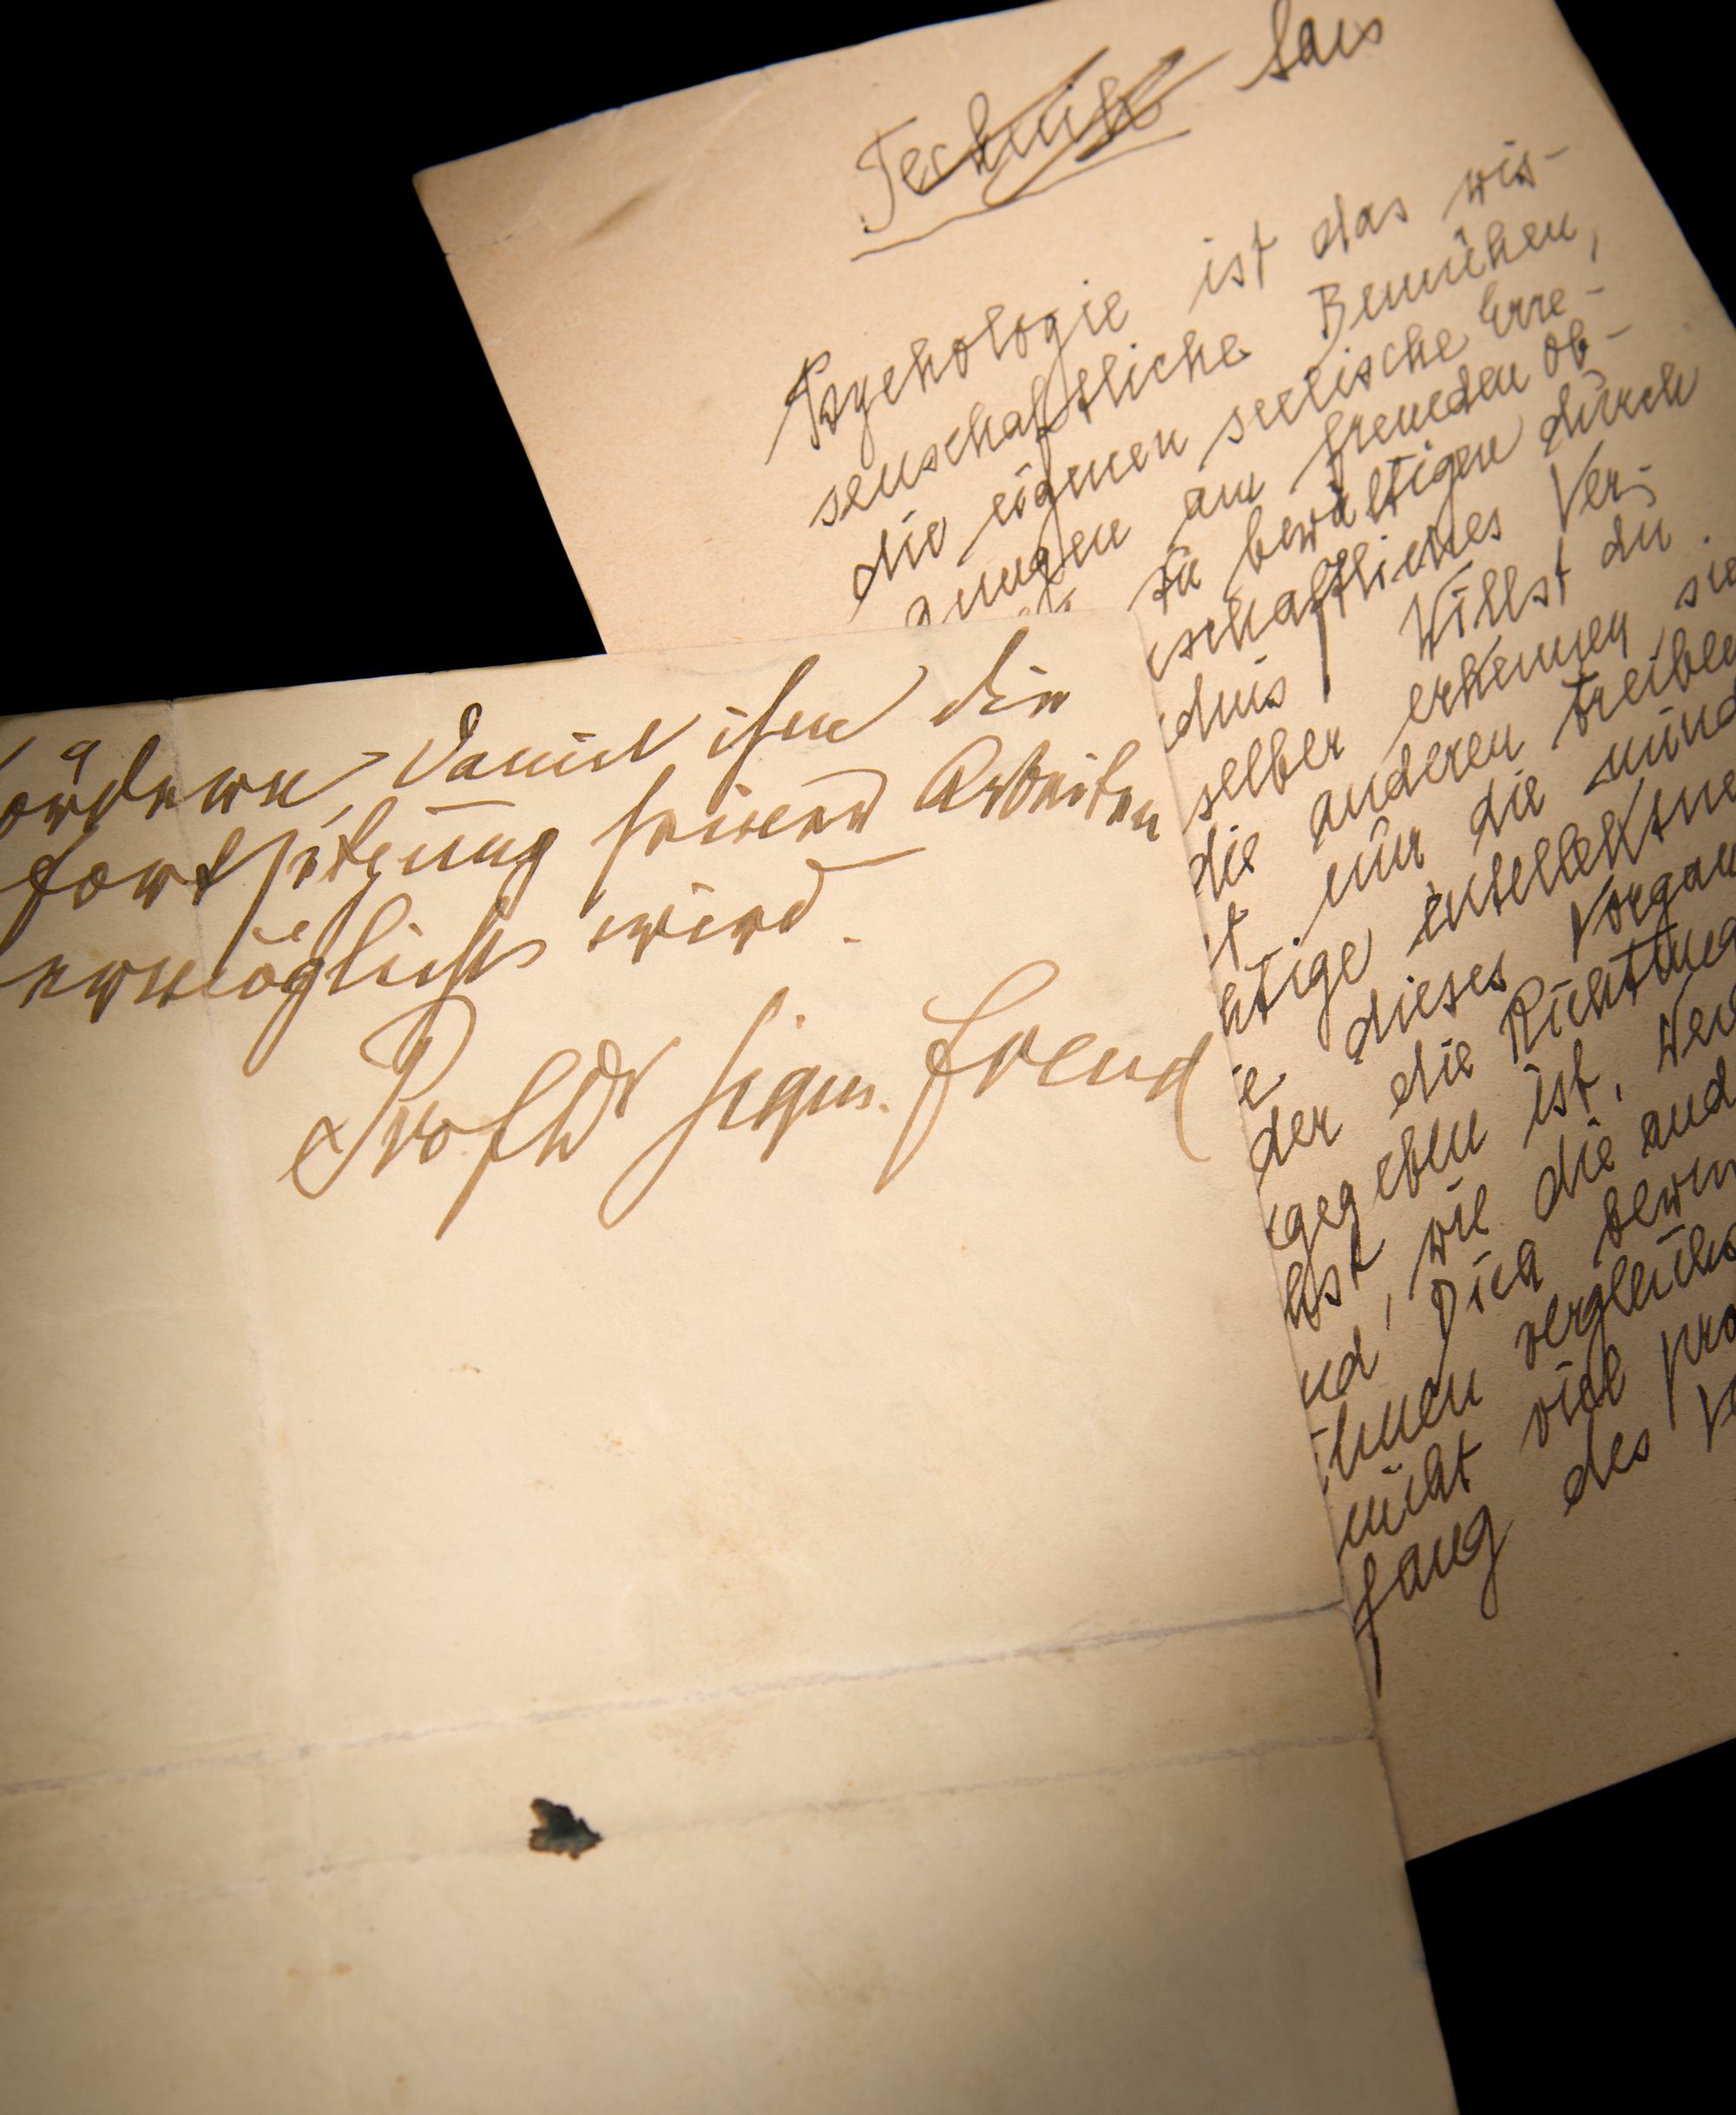 Technik Sais
Psychologie ist das wis-
senschaftliche Bemühen,
die eigenen seelische Erre-
gungen am fremden Ob-
zu bewältigen durch
schaftliches Ver-
dnis. Willst du
selber erkennen, sie
die anderen treiben
t nur die münd
htige intellektue
e dieses Vorgan
der die Richtung
gegeben ist. Wen
hst, wie die and
nd, Dich bewun
ihnen vergleichs
nicht viel pro
fang des V
ördern, damit ihm die
Fortsetzung seiner Arbeiten
ermöglicht wird.
Prof Dr Sigm. Freud